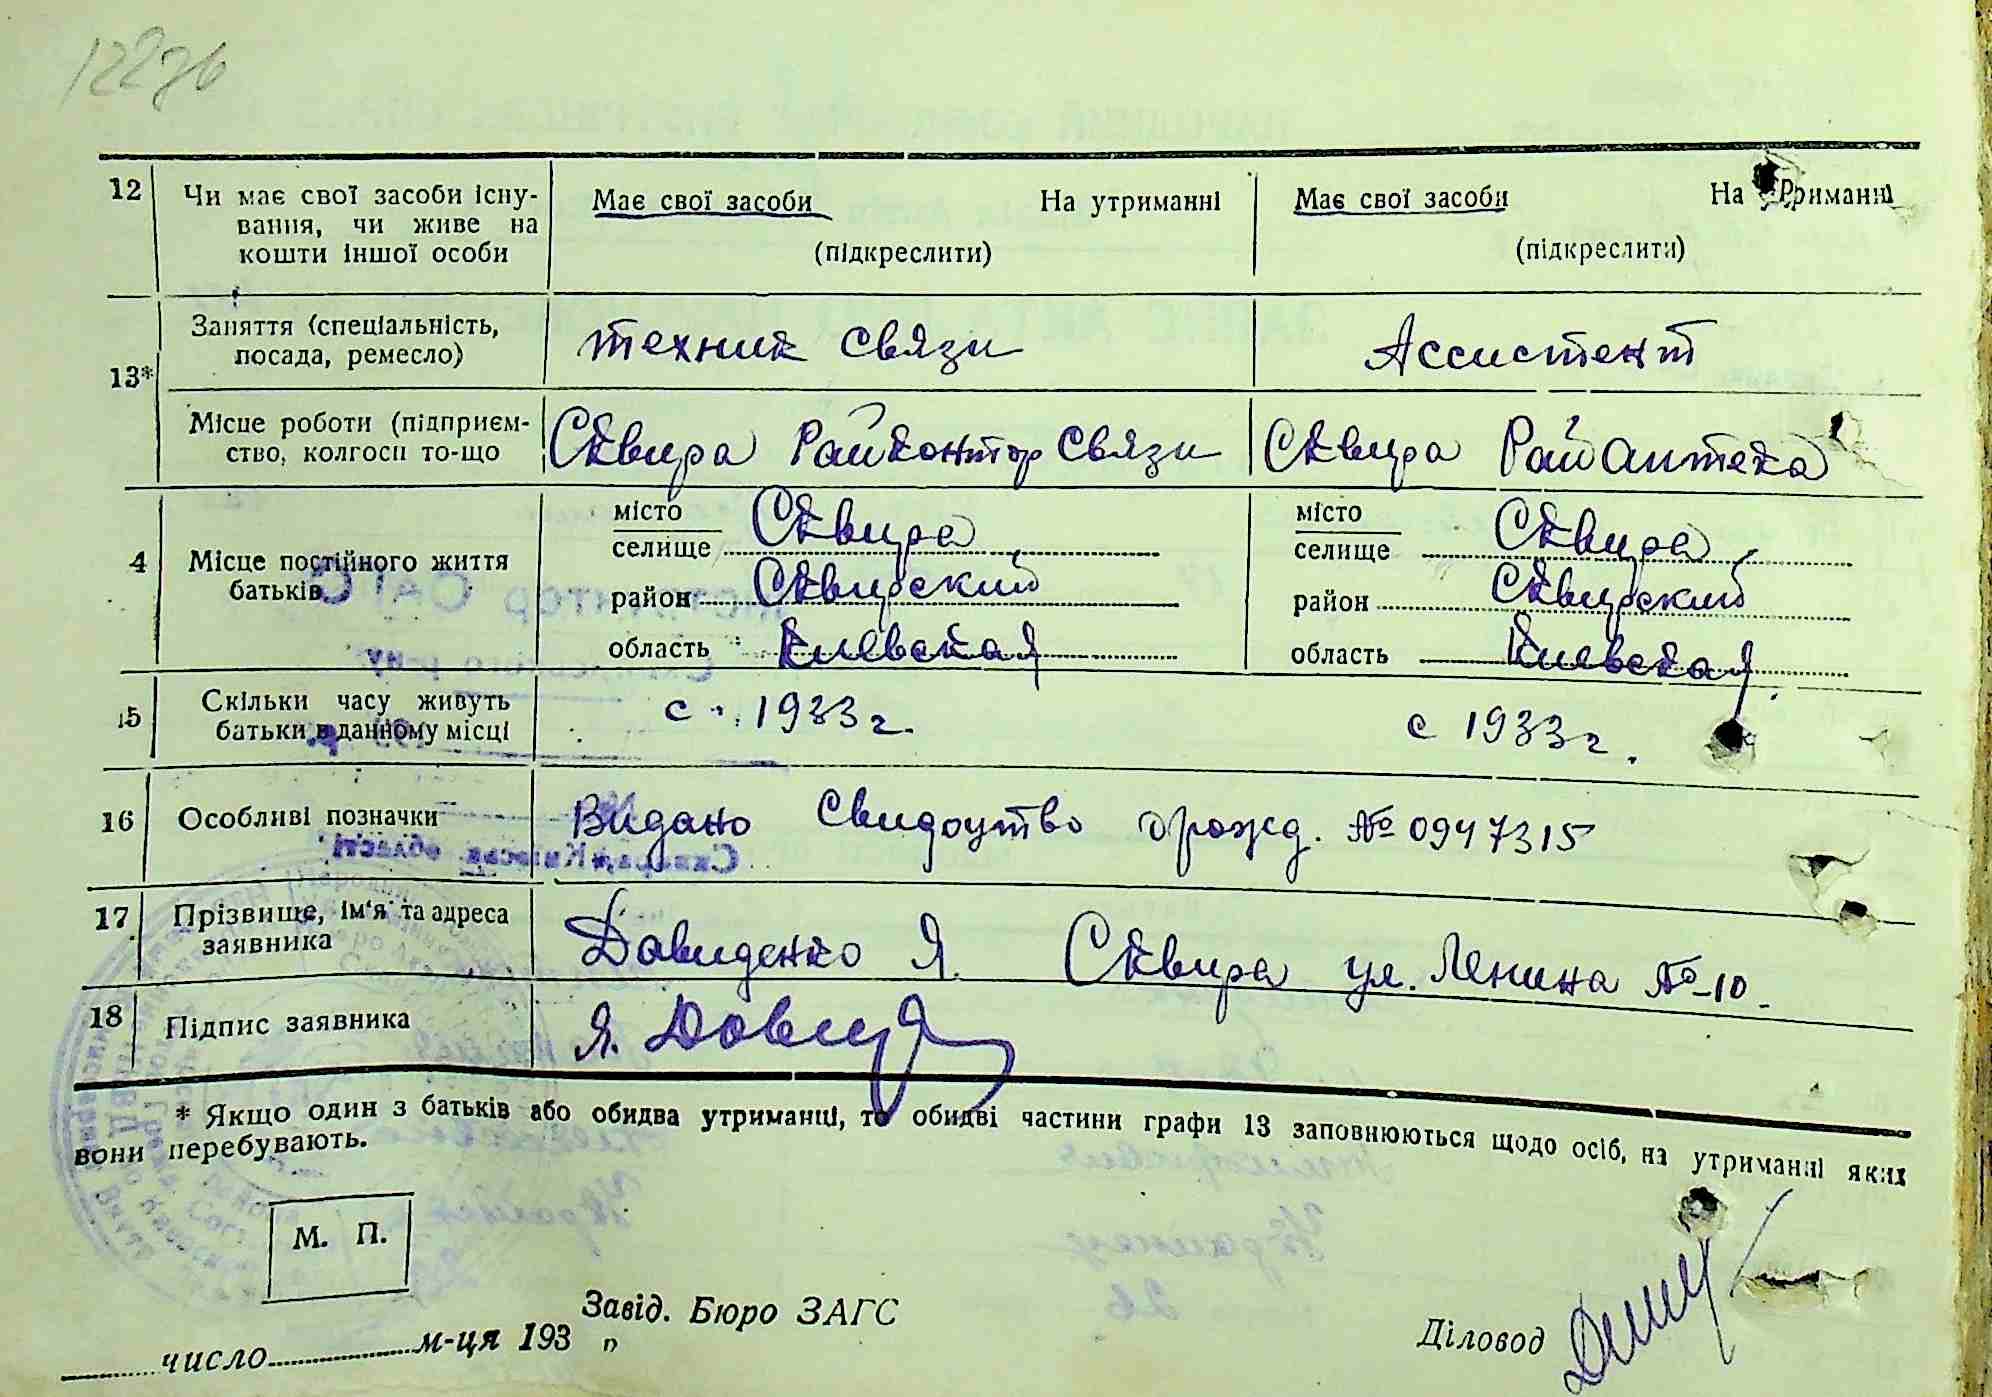 12
Чи має свої засоби існу-
вання, чи живе на
кошти іншої особи
Має свої засоби На утриманні
(підкреслити)
Має свої засоби На утриманні
(підкреслити)
13*
Заняття (спеціальність,
посада, ремесло)
техник связи
Ассистент
Місце роботи (підприєм-
ство, колгосп то-що
Сквира Райконтор Связи
Сквира Райаптека
4
Місце постійного життя
батьків
місто
селище Сквира
район Сквирский
область Киевская
місто
селище Сквира
район Сквирский
область Киевская
15
Скільки часу живуть
батьки в данному місці
с 1933 г.
с 1933 г.
16
Особливі позначки
Видано Свидоцтво орожд. № 0947315
17
Прізвище, ім'я та адреса
заявника
Давиденко Я. Сквира ул. Ленина №-10.
18
Підпис заявника
Я. Давид
* Якщо один з батьків або обидва утриманці, то обидві частини графи 13 заповнюються щодо осіб, на утриманні яких
вони перебувають.
М. П.
Завід. Бюро ЗАГС
число м-ця 193 „
Діловод